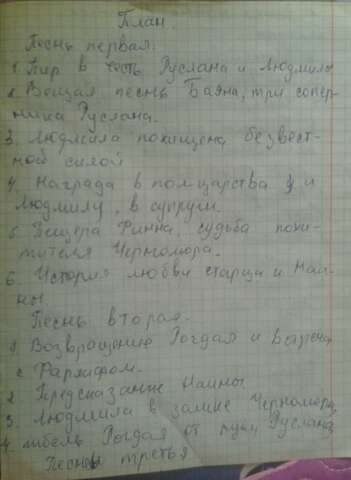 План.
Песнь первая.
1. Пир в честь Руслана и Людмилы
2. Вещая песнь Баяна, три сопер-
ника Руслана.
3. Людмила похищена безвест-
ной силой
4. Награда в полцарства и
Людмилу, в супруги.
5. Пещера Финна, судьба похи-
тителя Черномора.
6. История любви старца и Наи-
ны.
Песнь вторая.
1. Возвращению Рогдая и встреча
с Фарлафом.
2 Предсказание Наины
3. Людмила в замке Черномора,
4. гибель Рогдая от руки Руслана,
Песнь третья